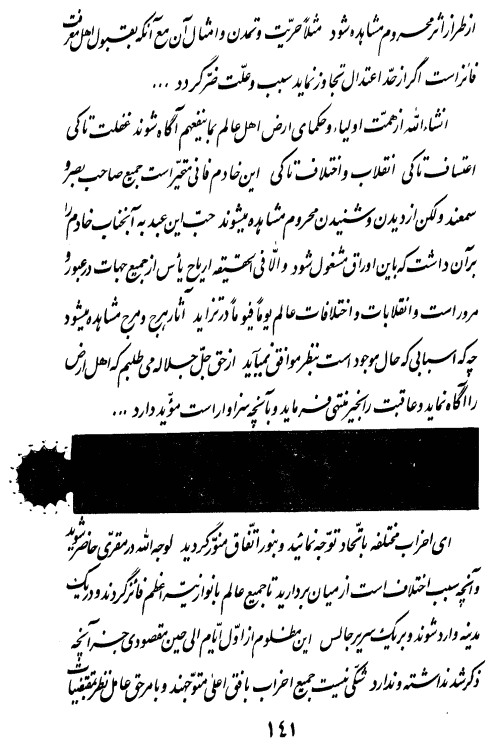 از طراز اثر محروم مشاهده شود مثلاً حرّیت و تمدن و امثال آن مع آنکه بقبول اهل معرفت
فائز است اگر از حدّ اعتدال تجاوز نماید سبب و علّت ضرّ گردد ...
انشاءالله از همّت اولیاء و حکمای ارض اهل عالم بما ینفعهم آگاه شوند غفلت تا کی
اعتساف تا کی انقلاب و اختلاف تا کی این خادم فانی متحیّر است جمیع صاحب بصر و
سمعند ولکن از دیدن و شنیدن محروم مشاهده میشوند حبّ این عبد به آنجناب خادم را
بر آن داشت که باین اوراق مشغول شود و الّا فی الحقیقه اریاح یأس از جمیع جهات در عبور و
مرور است و انقلابات و اختلافات عالم یوماً فیوماً در تزاید آثار هرج و مرج مشاهده میشود
چه که اسبابی که حال موجود است بنظر موافق نمیآید از حق جلّ جلاله می طلبم که اهل ارض
را آگاه نماید و عاقبت را بخیر منتهی فرماید و بآنچه سزاوار است مؤیّد دارد ...
ای احزاب مختلفه باتّحاد توجّه نمائید و بنور اتّفاق منوّر گردید لوجه الله در مقرّی حاضر شوید
و آنچه سبب اختلاف است از میان بردارید تا جمیع عالم بانوار نیّر اعظم فائز گردند و در یک
مدینه وارد شوند و بر یک سریر جالس این مظلوم از اوّل ایّام الی حین مقصودی جز آنچه
ذکر شد نداشته و ندارد شکّی نیست جمیع احزاب بافق اعلی متوجّهند و بامر حق عامل نظر بمقتضیات
۱۴۱